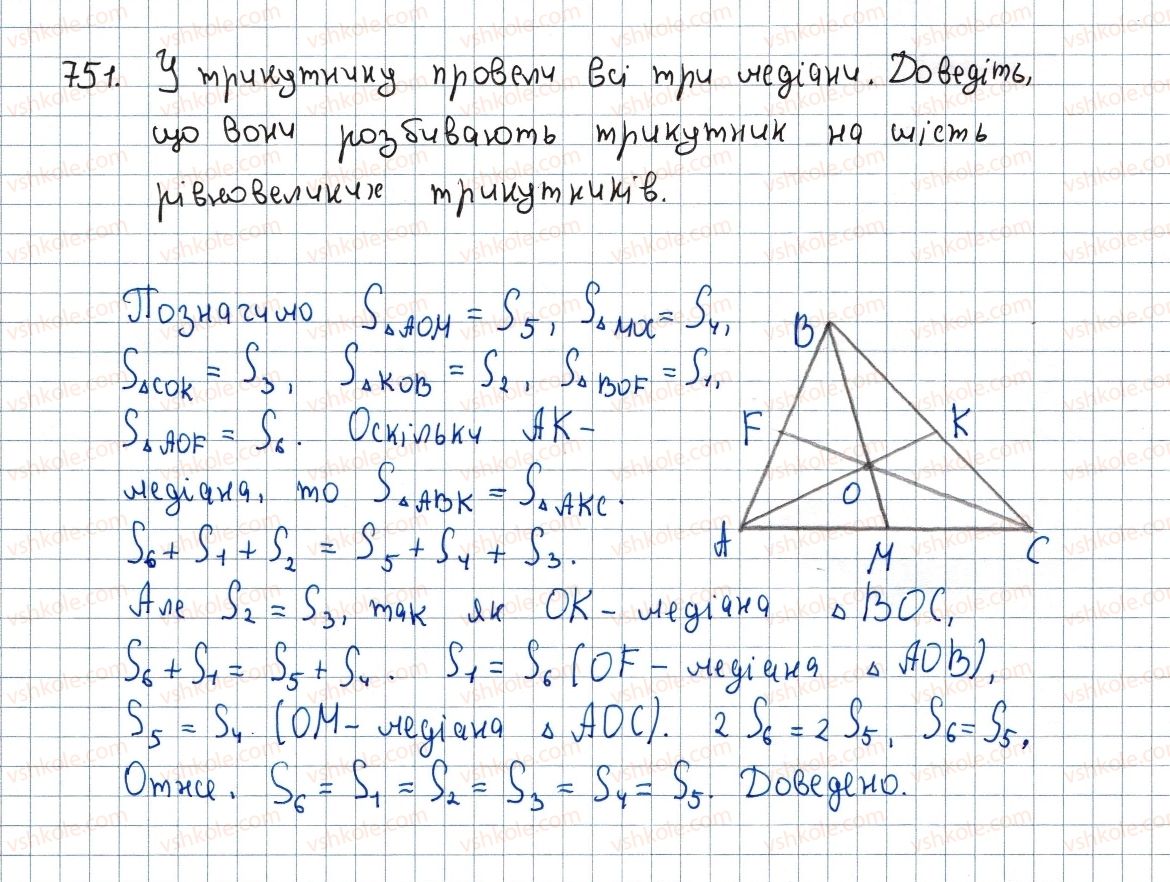 751. У трикутнику провели всі три медіани. Доведіть,
що вони розбивають трикутник на шість
рівновеликих трикутників.
Позначимо S△AOM = S5, S△MOC = S4,
S△COK = S3, S△KOB = S2, S△BOF = S1,
S△AOF = S6. Оскільки AK –
медіана, то S△ABK = S△AKC.
S6 + S1 + S2 = S5 + S4 + S3.
Але S2 = S3, так як OK – медіана △BOC,
S6 + S1 = S5 + S4. S1 = S6 (OF – медіана △AOB),
S5 = S4 (OM – медіана △AOC). 2S6 = 2S5, S6 = S5,
Отже. S6 = S1 = S2 = S3 = S4 = S5. Доведено.
B
F
K
O
A
M
C
vshkole.com